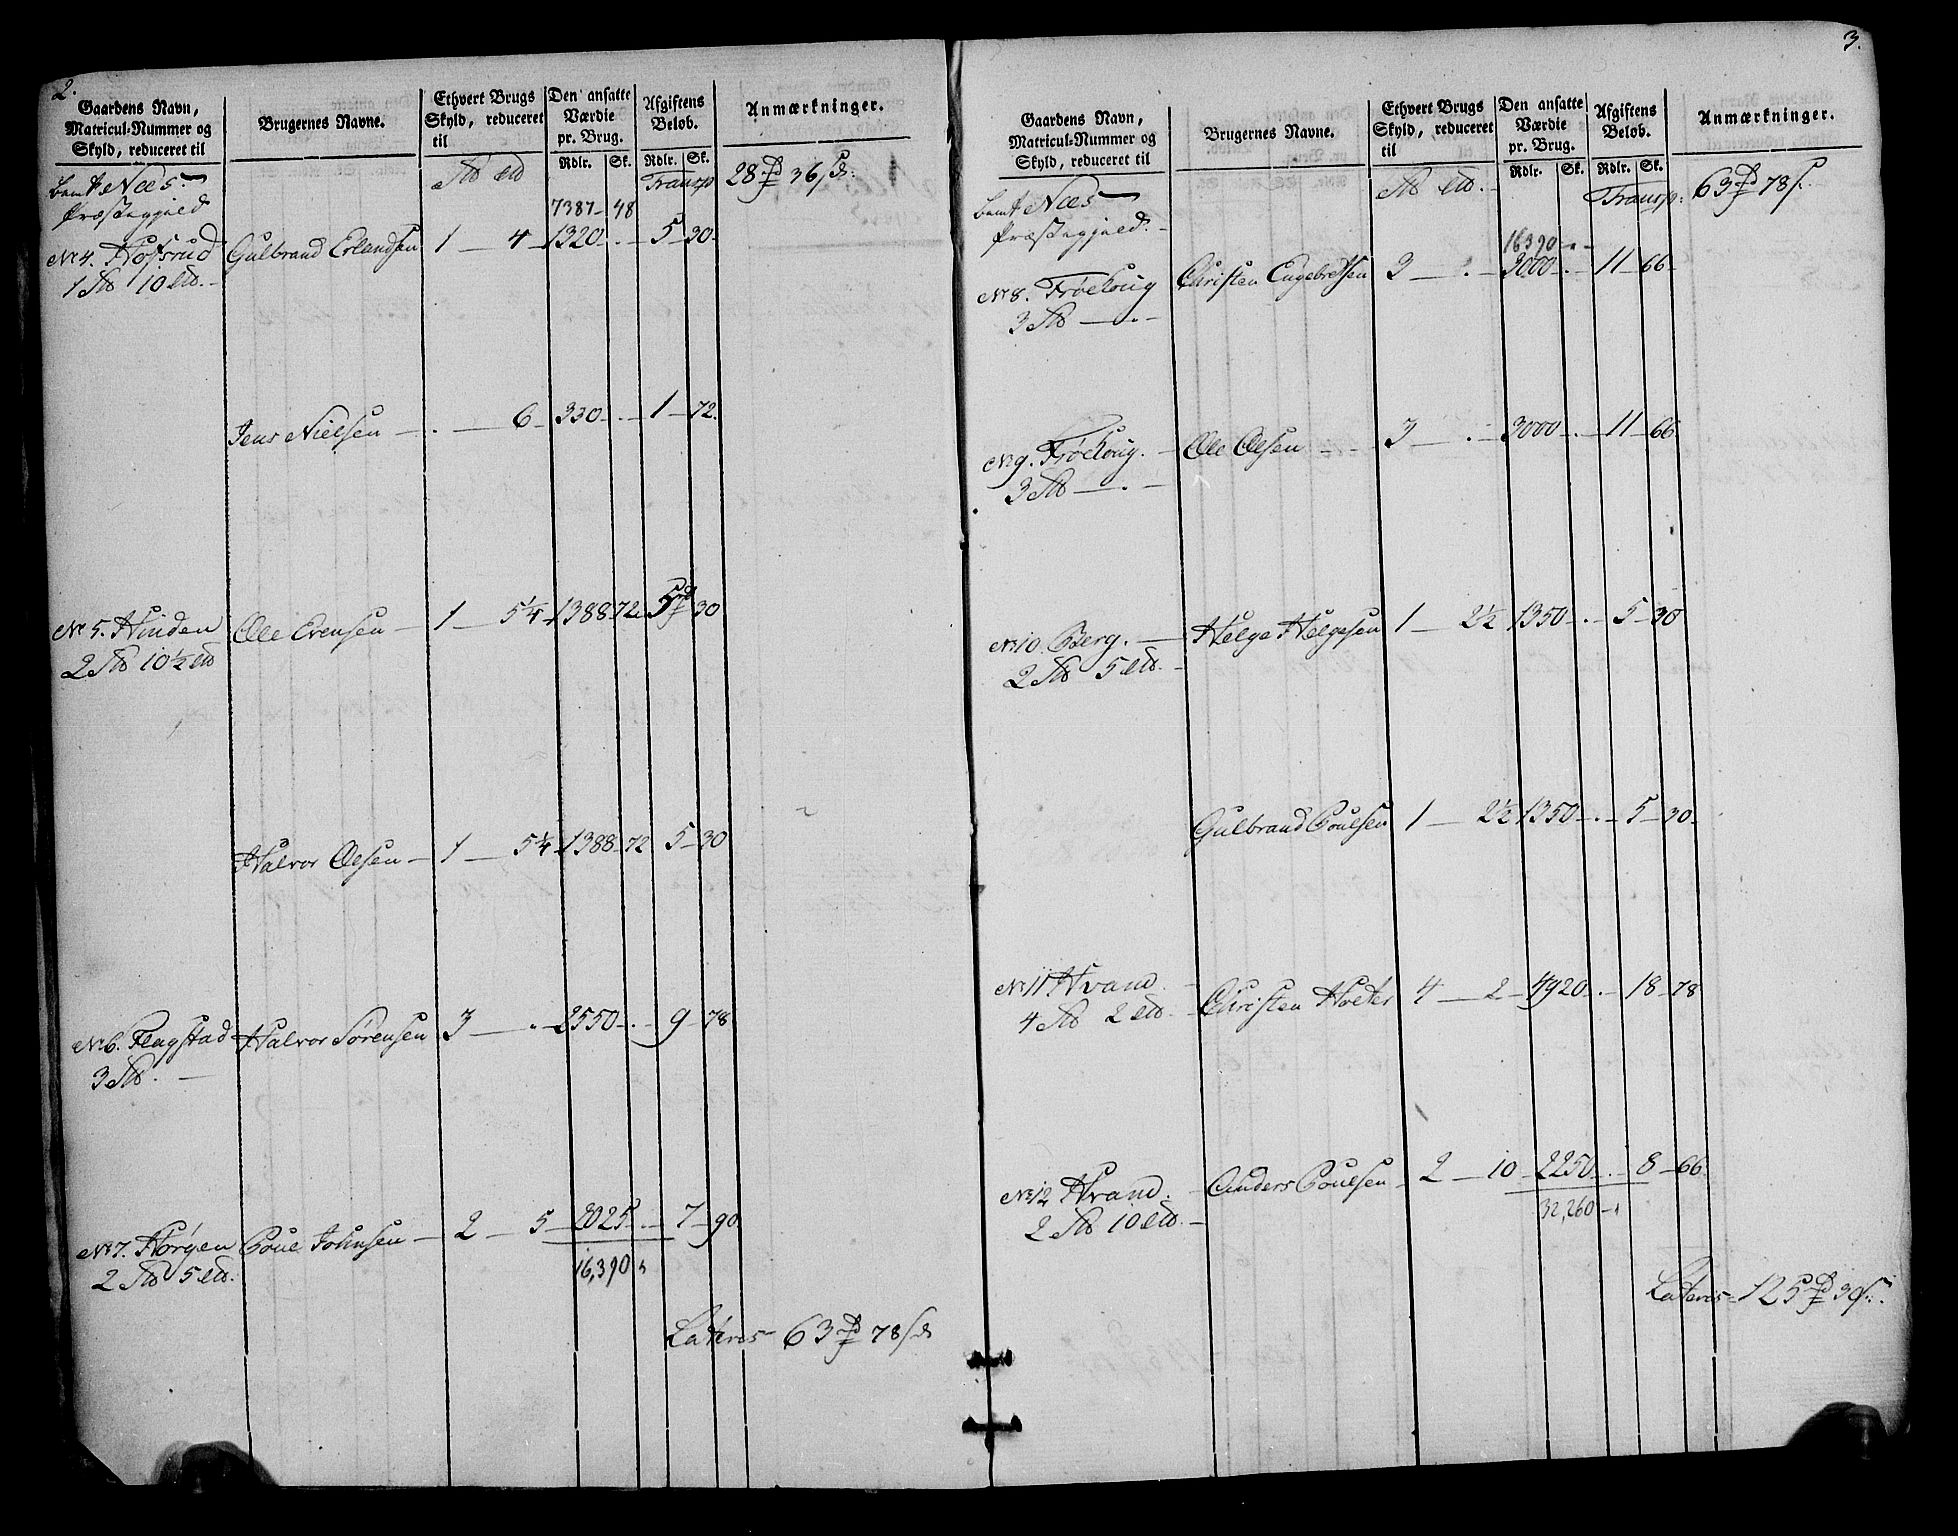 2.
Gaardens Navn, Matricul-Nummer og Skyld, reduceret til | Brugernes Navne. | Ethvert Brugs Skyld, reduceret til | Den ansatte Værdie pr. Brug. Rdlr. Sk. | Afgiftens Beløb. Rdlr. Sk. | Anmærkninger.
Næs Transp 28 36
Præstegjeld 7387 – 48
No 4. Hofsrud Gulbrand Erlandsen 1 — 4 – 1320 - . – 5 – 30 -
1 10
Jens Nielsen — . — 6 – 330 - . – 1 – 72.
No 5. Hinden Ole Evensen — 1 — 5¼ – 1388 – 72 5 30
2 10½
Halvor Olsen — 1 — 5¼ – 1388 – 72 5 – 30
No 6. Flagstad Halvor Sørensen 3 — . – 2550 - . – 9 – 78
3
No 7. Horgen Poul Johnsen — 2 — 5 – 2025 . – 7 – 90
2 5
16,390
Lateris – 63 78
3.
Gaardens Navn, Matricul-Nummer og Skyld, reduceret til | Brugernes Navne. | Ethvert Brugs Skyld, reduceret til | Den ansatte Værdie pr. Brug. Rdlr. Sk. | Afgiftens Beløb. Rdlr. Sk. | Anmærkninger.
Næs Transp: 63 78
Præstegjeld. 16390 - . -
No 8. Frøeloug Christen Engebretsen 3 — . – 3000 - . – 11 – 66 -
3 — . —
No 9. Frøeloug. – Ole Olsen 3 — . – 3000 - . – 11 – 66
3 — . —
No 10. Berg. — Helge Helgesen 1 — 2½ 1350 - . – 5 – 30
2 5
Gulbrand Poulsen 1 — 2½ 1350 - . – 5 – 30 -
No 11 Hvam. Christen Holter 4 — 2 – 4920 - . – 18 – 78
4 2
No 12 Hvam. – Anders Poulsen – 2 — 10 – 2250 - . – 8 – 66
2 10
32,260
Lateris – 125 30